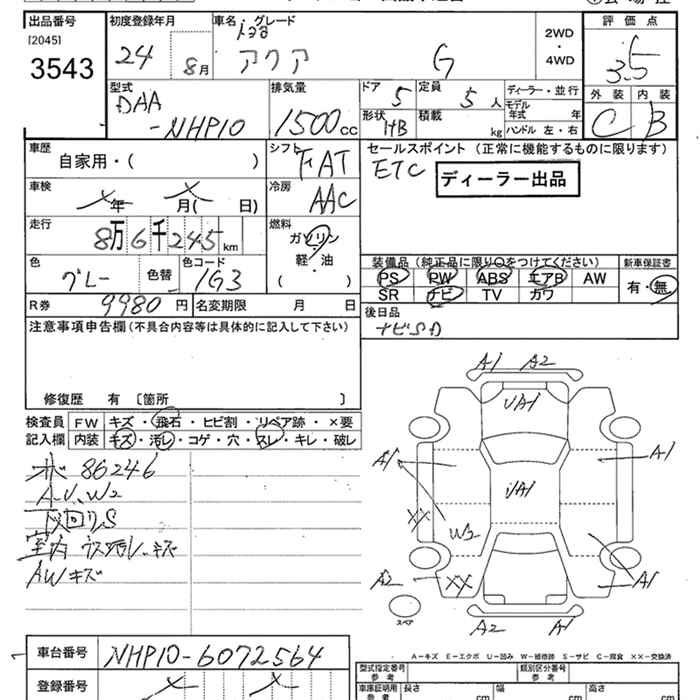 出品番号 初度登録年月 車名 グレード 2WD ・ 4WD 評価点
[2045]
3543 24 8月 トヨタ アクア G 3.5
型式 排気量 ドア 定員 ディーラー・並行 外装 内装
DAA 5 5人 モデル年式 年 C B
-NHP10 1500cc 形状 HB 積載 kg ハンドル 左・右
車歴 シフト セールスポイント (正常に機能するものに限ります)
自家用・( ) FAT ETC ディーラー出品
車検 冷房
年 月( 日) AAC
走行 燃料
8万6千245km ガソリン
軽・油
( )
色 色替 色コード 装備品 (純正品に限り○をつけてください) 新車保証書
グレー 1G3 PS PW ABS エアB AW 有・無
SR ナビ TV カワ
R券 9980円 名変期限 月 日 後日品
注意事項申告欄 (不具合内容等は具体的に記入して下さい) ナビSD
修復歴 有 〔箇所 〕
検査員 FW キズ・飛石・ヒビ割・リペア跡・×要
記入欄 内装 キズ・汚レ・コゲ・穴・スレ・キレ・破レ
86246
A.U.W2
下回りS
室内 キズ
AWキズ
A1 A2
A1
A1 A1
A1
XX W2
A2 XX A1
スペア
A2 A1
A-キズ E-エクボ U-凹み W-補修跡 S-サビ C-腐食 XX-交換済
車台番号 NHP10-6072564
登録番号
型式指定番号 参考 類別区分番号 参考
車庫証明用 参考 長さ cm 幅 cm 高さ cm